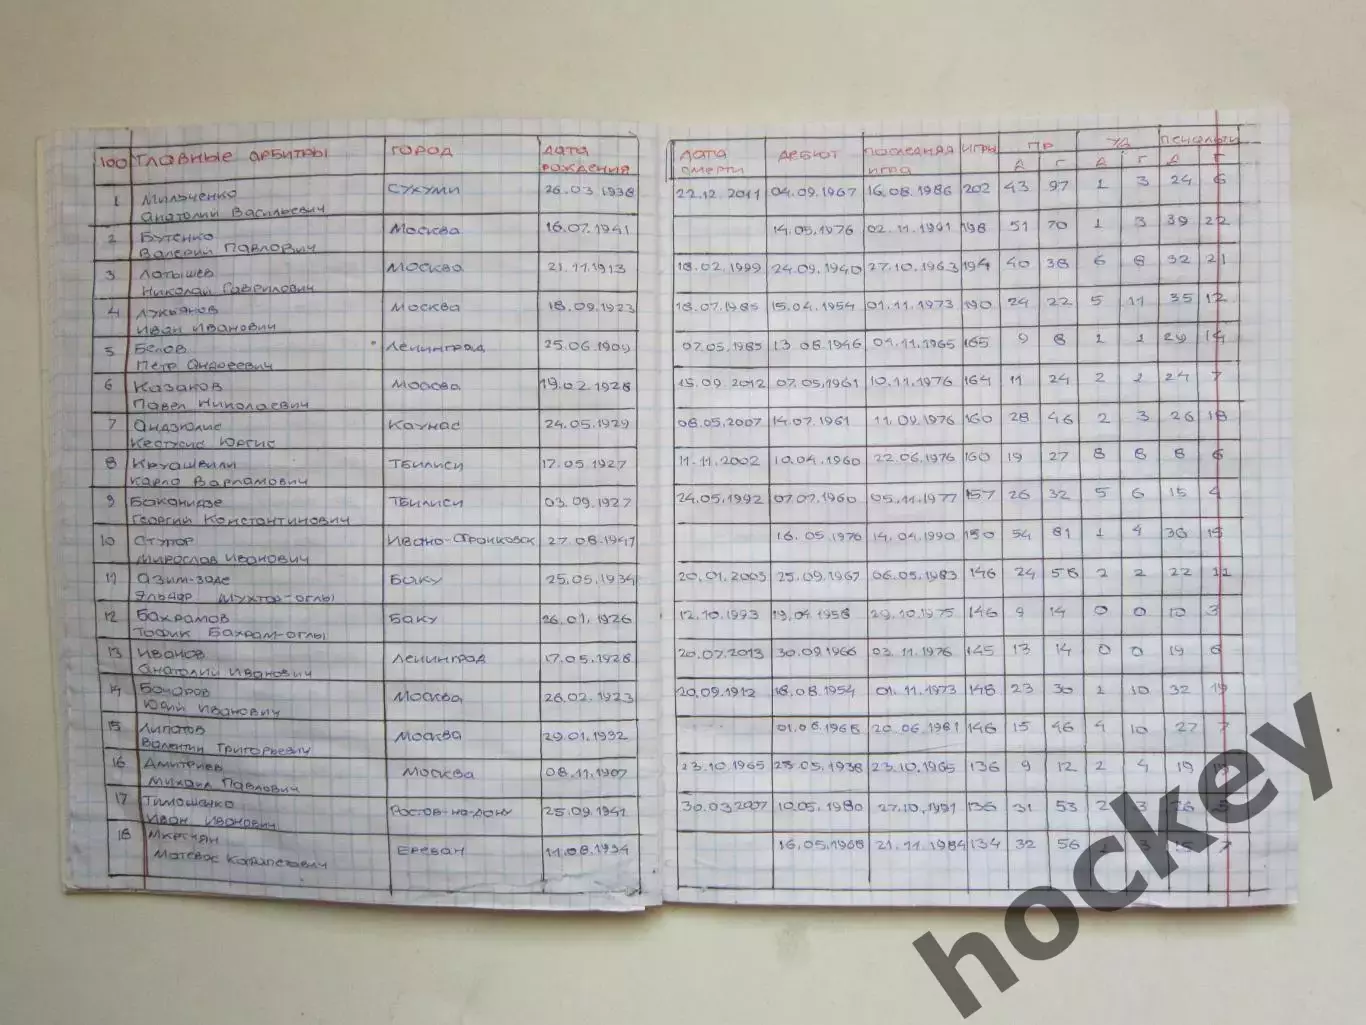 100 ГЛАВНЫЕ АРБИТРЫ ГОРОД ДАТА РОЖДЕНИЯ ДАТА СМЕРТИ ДЕБЮТ ПОСЛЕДНЯЯ ИГРА ИГРЫ ПР УД ПЕНАЛЬТИ
Д Г Д Г Д Г
1 Мильченко СУХУМИ 26.03.1938 22.12.2011 04.09.1967 16.08.1986 202 43 97 1 3 24 6
Анатолий Васильевич
2 Бутенко Москва 16.07.1941 14.05.1976 02.11.1991 198 51 70 1 3 39 22
Валерий Павлович
3 Латышев Москва 21.11.1913 18.02.1999 24.09.1940 27.10.1963 194 40 38 6 8 32 21
Николай Гаврилович
4 Лукьянов Москва 18.09.1923 18.07.1985 15.04.1954 01.11.1973 190 24 22 5 11 35 12
Иван Иванович
5 Белов Ленинград 25.06.1909 07.05.1985 13.08.1946 04.11.1965 165 9 8 1 1 29 14
Петр Андреевич
6 Казаков Москва 19.02.1928 15.09.2012 07.05.1961 10.11.1976 164 11 24 2 1 24 7
Павел Николаевич
7 Андзюлис Каунас 24.05.1929 08.05.2007 14.07.1961 11.09.1976 160 28 46 2 3 26 18
Кестусис Юргис
8 Круашвили Тбилиси 17.05.1927 11.11.2002 10.04.1960 22.06.1976 160 19 27 8 8 8 6
Карло Варламович
9 Баканидзе Тбилиси 03.09.1927 24.05.1992 07.07.1960 05.11.1977 157 26 32 5 6 15 4
Георгий Константинович
10 Ступар Ивано-Франковск 27.08.1941 16.05.1976 14.04.1990 150 54 81 1 4 36 15
Мирослав Иванович
11 Азим-заде Баку 25.05.1934 20.01.2003 25.09.1967 06.05.1983 146 24 58 2 2 22 11
Эльдар Мухтар-оглы
12 Бахрамов Баку 26.01.1926 12.10.1993 19.04.1958 29.10.1975 146 9 14 0 0 10 3
Тофик Бахрам-оглы
13 Иванов Ленинград 17.05.1928 20.07.2013 30.09.1966 03.11.1976 145 13 14 0 0 19 6
Анатолий Иванович
14 Бочаров Москва 26.02.1923 20.09.1912 18.08.1954 01.11.1973 148 23 30 1 10 32 19
Юрий Иванович
15 Липатов Москва 29.01.1932 01.06.1968 20.06.1981 146 15 46 4 10 27 7
Валентин Григорьевич
16 Дмитриев Москва 08.11.1907 23.10.1965 23.05.1938 23.10.1965 136 9 12 2 4 19
Михаил Павлович
17 Тимошенко Ростов-на-Дону 25.09.1941 30.03.2007 10.05.1980 27.10.1991 136 31 53 2 3 26
Иван Иванович
18 Мкртчян Ереван 11.08.1934 16.05.1968 21.11.1984 134 32 56 3 15 7
Матевос Карапетович
hockey